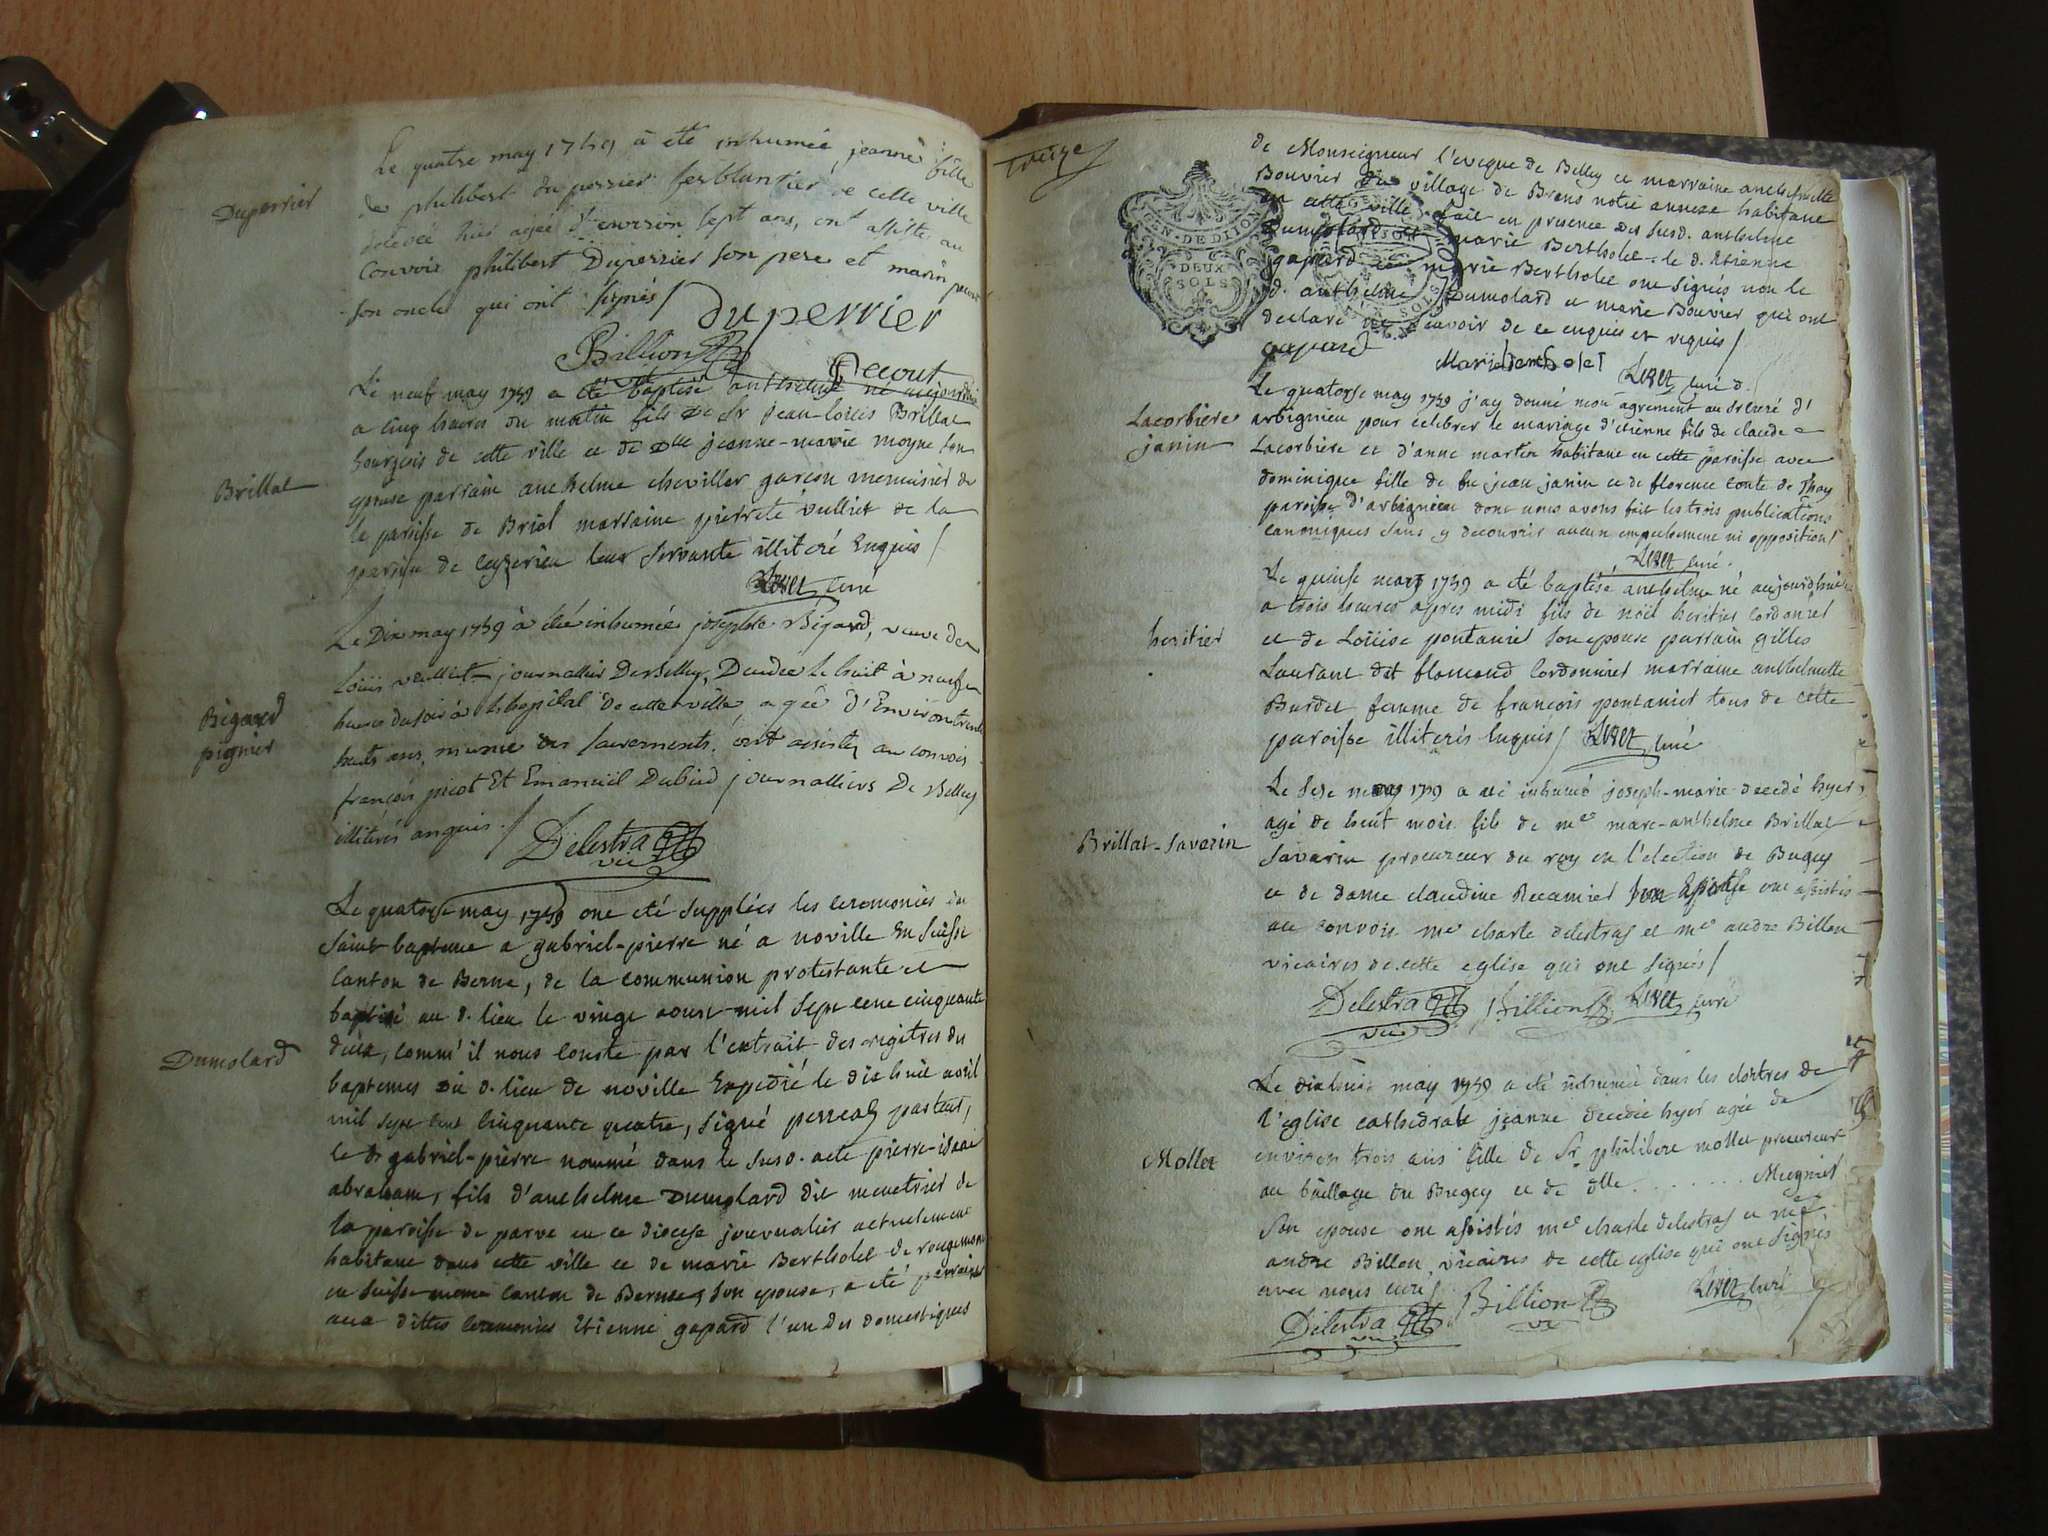 Duperrier
Le quatre may 1759 a eté inhumée, jeanne fille
de philibert du perrier ferblantier de cette ville
decedée hier agée d'environ sept ans, ont assisté au
Convoir philibert Duperrier son pere et marin
son oncle qui ont signés / Duperrier
Billion
Decout
Brillat
Le neuf may 1759 a été baptisé anthelme né aujourdhui
a cinq heures du matin fils de Sr jean-loüis Brillat
bourgois de cette ville et de Dlle jeanne-marie moyne son
epouse parrain anthelme chevillar garcon menuisier de
la paroisse de Briol marraine pierrete vulliet de la
paroisse de ceyzerieu leur servante illiteré enquis /
curé
Bigard
pignier
Le Dix may 1759 à été inhumée josephte Bigard, veuve de
Loüis vulliet journallier De Belley, Decedée le huit à neuf
heures du soir à l'hopital de cette ville agée d'Environ trente
huits ans, munie des sacrements, ont assisté au convois
françois picot Et Emanuël Dubied journalliers De Belley
illiterés anquis. / Delestra
vic
Dumolard
Le quatorse may 1759 ont eté supplées les ceremonies du
saint bapteme a gabriel-pierre né a noville En suisse
canton de Berne, de la communion protestante et
baptisé au d. lieu le vingt aoust mil sept cent cinquante
deux, comm' il nous conste par l'extrait des registres des
baptemes du d. lieu de noville Expedié le dix huit avril
mil sept cent cinquante quatre, signé pasteur,
le d. gabriel-pierre nommé dans le susd. acte pierre-isaac
abraham, fils d'anthelme Dumolard dit menetrier de
la paroisse de parve en ce diocese journalier actuelement
habitant dans cette ville et de marie Berthollet de rougemont
en suisse meme canton de Berne son epouse, a eté parrain
aux dittes ceremonies Etienne gapard l'un des domestiques
treize
GEN. DE DIJON
DEUX
SOLS
de Monseigneur l'eveque de Belley et marraine anthelmette
Bouvier du village de Brens notre annexe habitant
en cette ville. fait en presence des susd. anthelme
Dumolard et marie Bertholet. le d. Etienne
gapard et marie Berthollet ont signés non le
d. anthelme Dumolard et marie Bouvier qui ont
declaré ne sçavoir de ce enquis et requis /
gapard
Marie berthOlet
curé
Lacorbiere
janin
Le quatorse may 1759 j'ay donné mon agrement au Sr curé d'
arbignieu pour celebrer le mariage d'etienne fils de claude
Lacorbiere et d'anne martin habitant en cette paroisse avec
dominique fille de feu jean janin et de florence conte de Thoy
paroisse d'arbignieu dont nous avons fait les trois publications
canoniques sans y decouvrir aucun empechement ni opposition /
curé.
heritier
Le quinse may 1759 a été baptisé anthelme né aujourdhui
a trois heures apres midi fils de noël heritier cordonier
et de Loüise pontanier son epouse parrain gilles
Laurant dit flamand Cordonnier marraine anthelmette
Burdet femme de françois pontanier tous de cette
paroisse illiterés Enquis / curé
Brillat-Savarin
Le sese may 1759 a été inhumé joseph-marie decedé hyer
agé de huit mois fils de me marc-anthelme Brillat
Savarin procureur du roy en l'election de Bugey
et de dame claudine Recamier son Epouse ont assistés
au convois me charle delestras et me andre Billon
vicaires de cette eglise qui ont signés /
Delestra
vic
Billion
curé
Mollet
Le dixhuit may 1759 a été inhumée dans les cloitres de
l'eglise cathedrale jeanne decedée hyer agée de
environ trois ans fille de Sr philibert mollet procureur
au baillage du Bugey et de dlle ........ Mugnier
Son epouse ont assistés me charle delestras et me
andre Billon, vicaires de cette eglise qui ont signés
avec nous curé / Billion
vic
curé
Delestra
vic